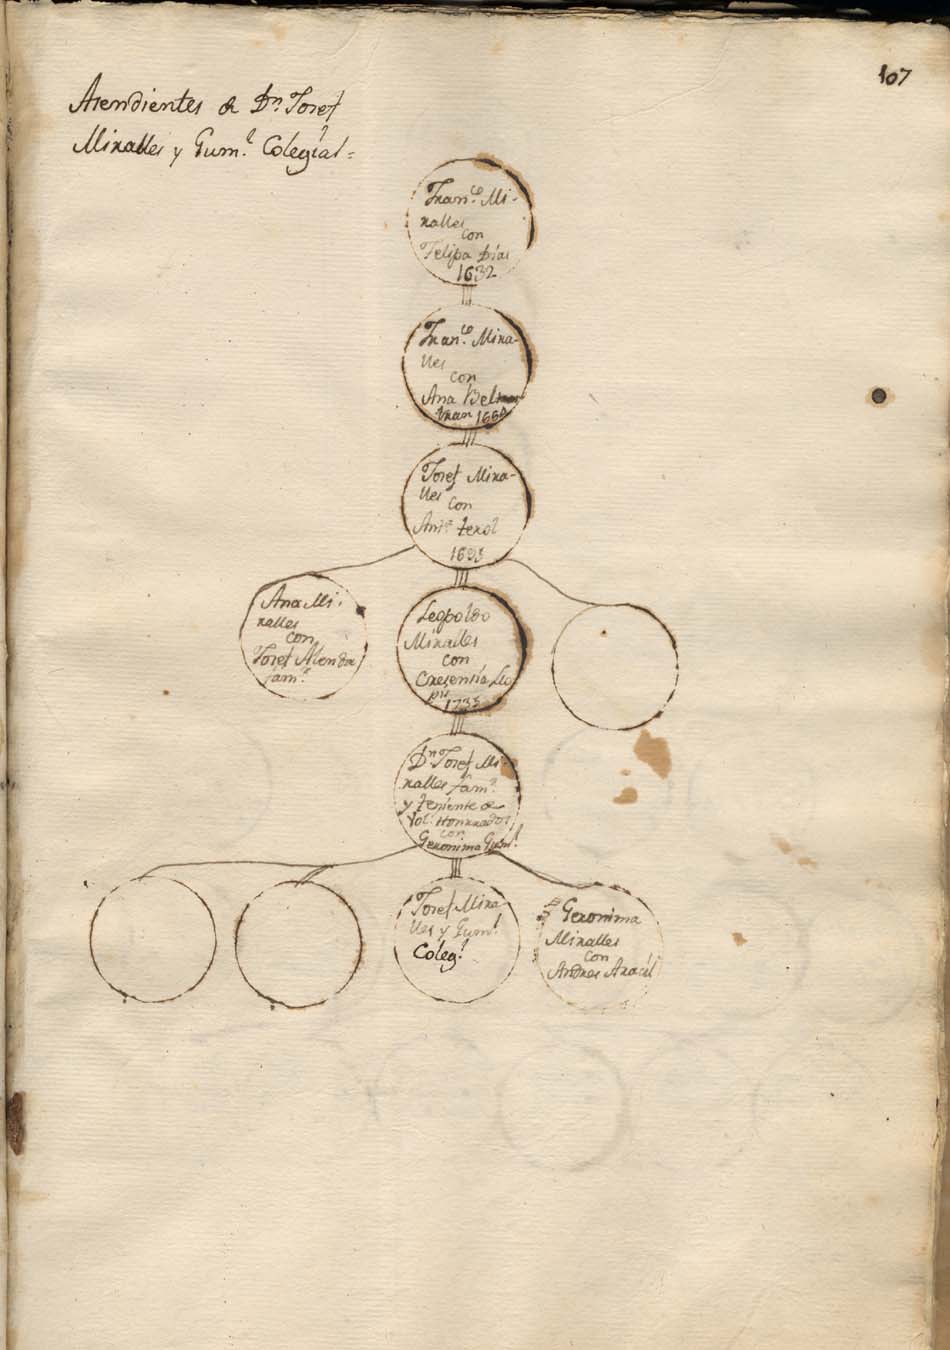 107
Asendientes de Dn. Josef
Miralles y Gum.l Colegial=
Fran.co Mi-
ralles
con
Felipa Dias
1632
Fran.co Mira-
lles
con
Ana Bel
tran 166
Josef Mira-
lles
con
Ant.a Ferol
1693
Ana Mi-
ralles
con
Josef Alenda
fam.r
Leopoldo
Miralles
con
Cresensia Llo
pis
1735
Dn. Josef Mi-
ralles fam.r
y Teniente de
Vol.s Honrrados
con
Geronima Gum.l
Josef Mira-
lles y Gum.l
Coleg.l
Geronima
Miralles
con
Andres Aracil